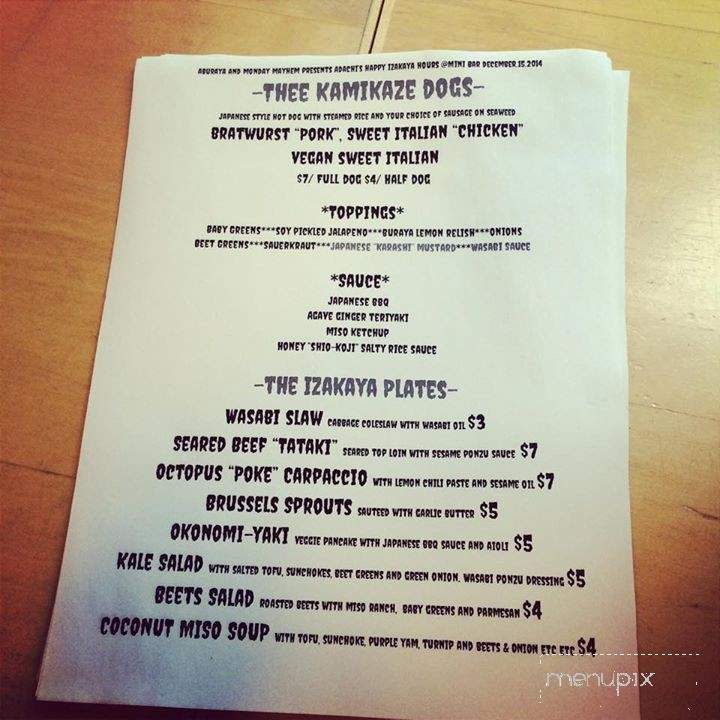 ABURAYA AND MONDAY MAYHEM PRESENTS ADACHI'S HAPPY IZAKAYA HOURS @MINI BAR DECEMBER.15.2014
-THEE KAMIKAZE DOGS-
JAPANESE STYLE HOT DOG WITH STEAMED RICE AND YOUR CHOICE OF SAUSAGE ON SEAWEED
BRATWURST "PORK", SWEET ITALIAN "CHICKEN"
VEGAN SWEET ITALIAN
$7/ FULL DOG $4/ HALF DOG
*TOPPINGS*
BABY GREENS***SOY PICKLED JALAPENO***BURAYA LEMON RELISH***ONIONS
BEET GREENS***SAUERKRAUT***JAPANESE "KARASHI" MUSTARD***WASABI SAUCE
*SAUCE*
JAPANESE BBQ
AGAVE GINGER TERIYAKI
MISO KETCHUP
HONEY "SHIO-KOJI" SALTY RICE SAUCE
-THE IZAKAYA PLATES-
WASABI SLAW CABBAGE COLESLAW WITH WASABI OIL $3
SEARED BEEF "TATAKI" SEARED TOP LOIN WITH SESAME PONZU SAUCE $7
OCTOPUS "POKE" CARPACCIO WITH LEMON CHILI PASTE AND SESAME OIL $7
BRUSSELS SPROUTS SAUTEED WITH GARLIC BUTTER $5
OKONOMI-YAKI VEGGIE PANCAKE WITH JAPANESE BBQ SAUCE AND AIOLI $5
KALE SALAD WITH SALTED TOFU, SUNCHOKES, BEET GREENS AND GREEN ONION. WASABI PONZU DRESSING $5
BEETS SALAD ROASTED BEETS WITH MISO RANCH, BABY GREENS AND PARMESAN $4
COCONUT MISO SOUP WITH TOFU, SUNCHOKE, PURPLE YAM, TURNIP AND BEETS & ONION ETC ETC $4
menupix